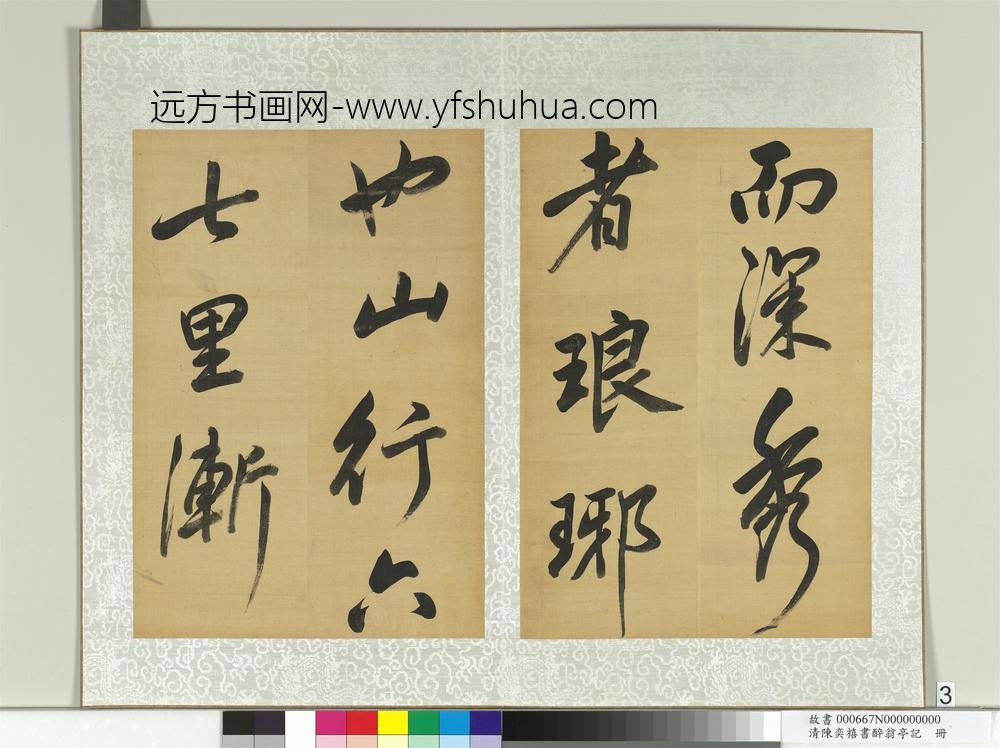 远方书画网-www.yfshuhua.com
而深秀
者琅琊
也山行六
七里漸
3
故書 000667N000000000
清陳奕禧書醉翁亭記 冊